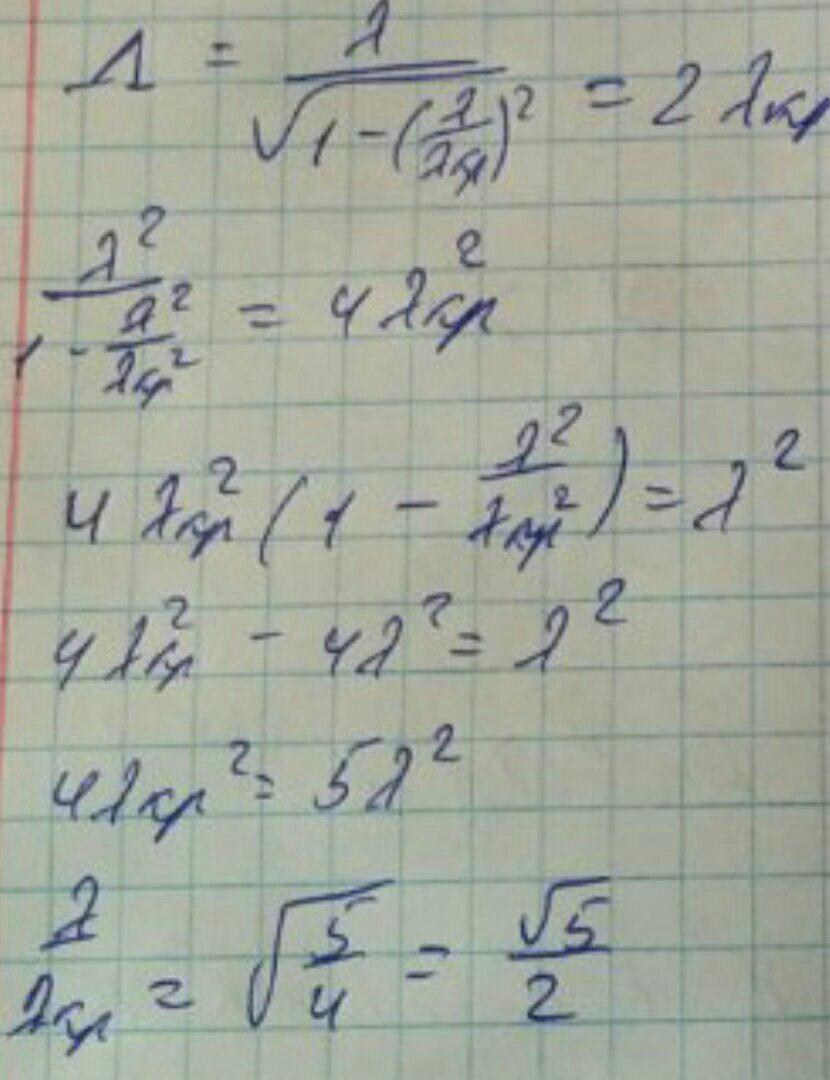 Λ = λ / √(1 - (λ/λкр)²) = 2 λкр
λ² / (1 - λ²/λкр²) = 4 λкр²
4 λкр² (1 - λ²/λкр²) = λ²
4λкр² - 4λ² = λ²
4λкр² = 5λ²
λ/λкр = √(5/4) = √5/2